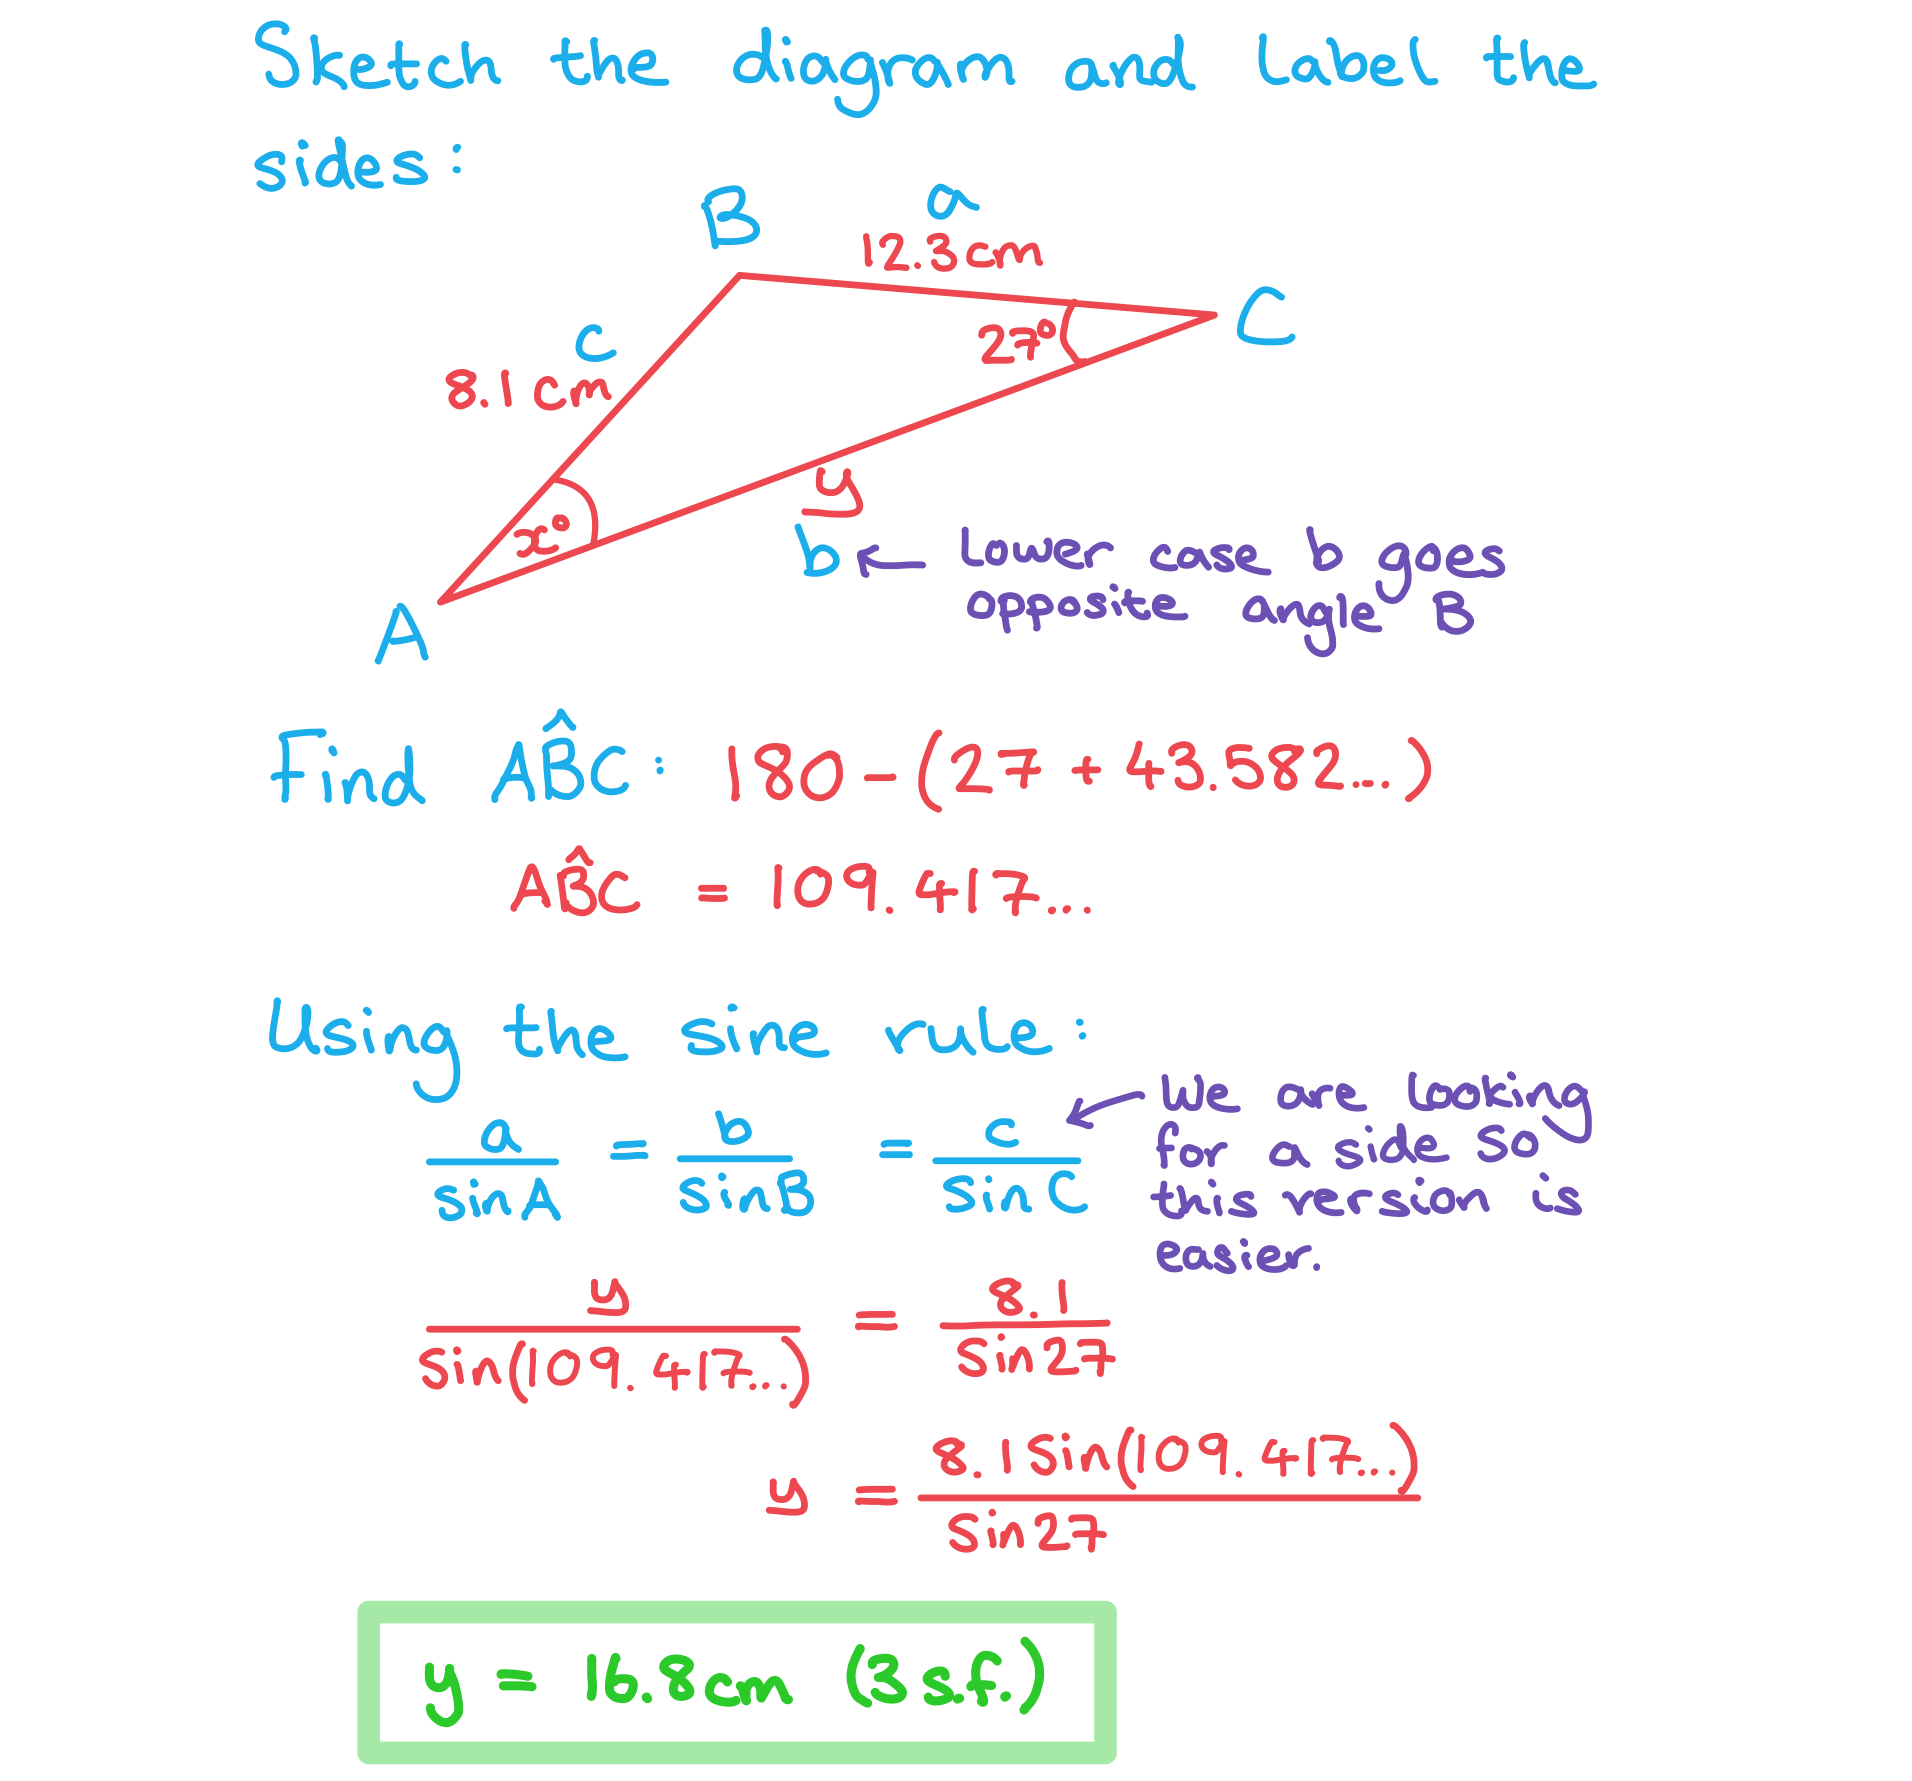 Sketch the diagram and label the
sides:
B
a
12.3cm
C
c
27°
8.1cm
y
x°
b ← lower case b goes
opposite angle B
A
Find AB̂C: 180-(27+43.582...)
AB̂C = 109.417...
Using the sine rule:
a/sinA = b/sinB = c/sinC
← We are looking
for a side so
this version is
easier.
y/sin(109.417...) = 8.1/sin27
y = 8.1sin(109.417...)/sin27
y = 16.8cm (3s.f.)